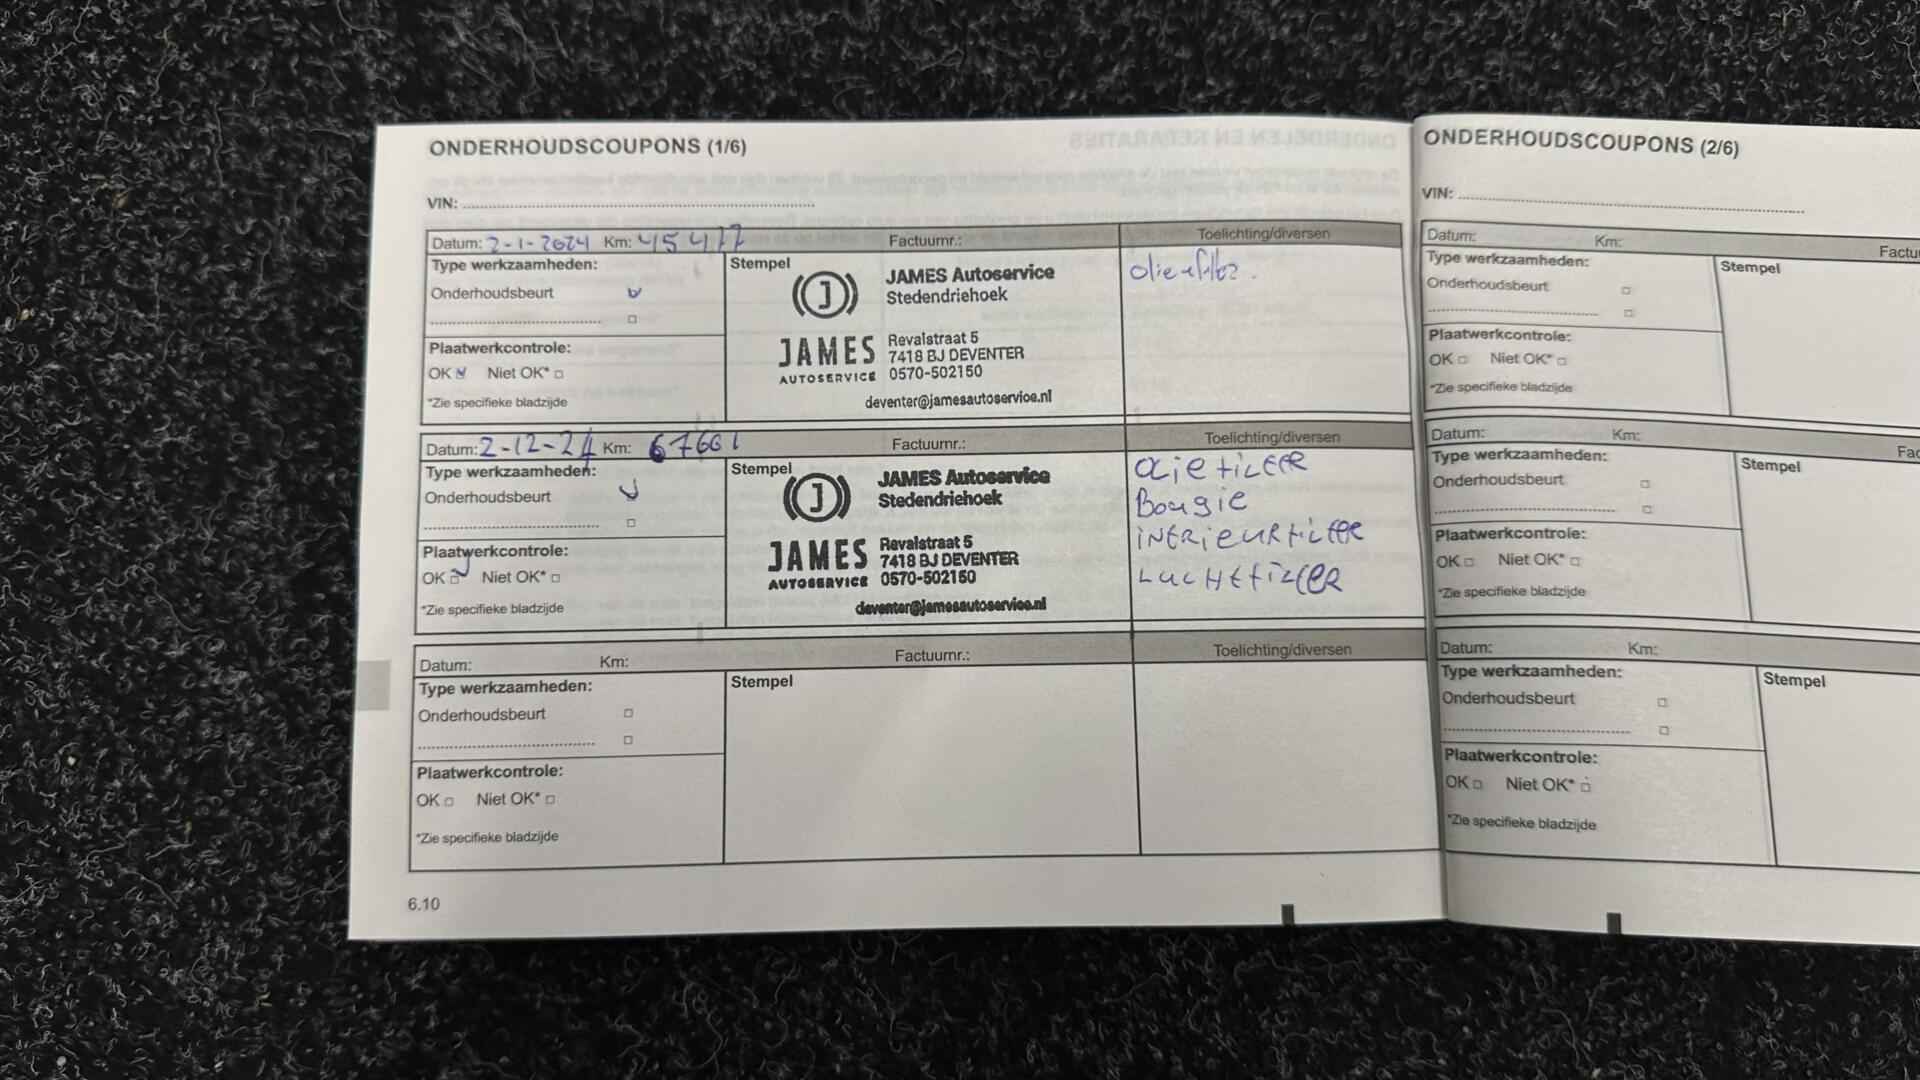 ONDERHOUDSCOUPONS (1/6)
VIN:
Datum: 2-1-2024 Km: 45477 Factuurnr.: Toelichting/diversen
Type werkzaamheden:
Onderhoudsbeurt
Plaatwerkcontrole:
OK Niet OK*
*Zie specifieke bladzijde
Stempel
JAMES Autoservice
Stedendriehoek
JAMES
AUTOSERVICE
Revalstraat 5
7418 BJ DEVENTER
0570-502150
deventer@jamesautoservice.nl
Datum: 2-12-24 Km: 67661 Factuurnr.: Toelichting/diversen
Type werkzaamheden:
Onderhoudsbeurt
Plaatwerkcontrole:
OK Niet OK*
*Zie specifieke bladzijde
Stempel
JAMES Autoservice
Stedendriehoek
JAMES
AUTOSERVICE
Revalstraat 5
7418 BJ DEVENTER
0570-502150
deventer@jamesautoservice.nl
OLiEFiLTER
Bougie
iNTRiEURFiLTER
LUCHTFiLTER
Datum: Km: Factuurnr.: Toelichting/diversen
Type werkzaamheden:
Onderhoudsbeurt
Plaatwerkcontrole:
OK Niet OK*
*Zie specifieke bladzijde
Stempel
6.10
ONDERHOUDSCOUPONS (2/6)
VIN:
Datum: Km: Factu
Type werkzaamheden:
Onderhoudsbeurt
Plaatwerkcontrole:
OK Niet OK*
*Zie specifieke bladzijde
Stempel
Datum: Km: Fac
Type werkzaamheden:
Onderhoudsbeurt
Plaatwerkcontrole:
OK Niet OK*
*Zie specifieke bladzijde
Stempel
Datum: Km:
Type werkzaamheden:
Onderhoudsbeurt
Plaatwerkcontrole:
OK Niet OK*
*Zie specifieke bladzijde
Stempel